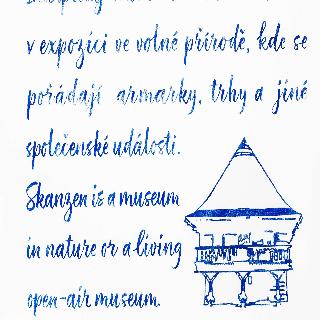 v expozíci ve volné přírodě, kde se
pořádají armarky, trhy a jíné
společenské události.
Skanzen is a museum
in nature or a living
open-air museum.